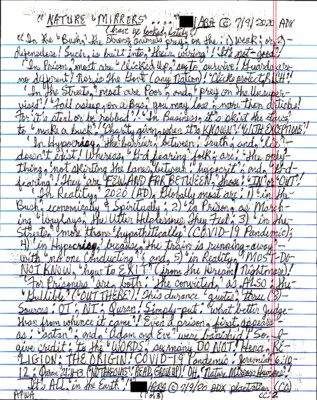 "NATURE "MIRRORS"..... ARA @ 7/9/2020 ADX
(have ye looked, lately?)
"In the "Bush," the Strong animals prey on the: 1) WEAK; or 2)
defenseless! Such, is built into, their wiring! It's not good!
"In Prison, most are "Cliqued Up," to survive! Guards are
no different! Nor, is the Gov't (any Nation)! "Clicks protect RICH"!
"In the Streets," most are Poor; and, "prey on the Unsuper-
vised!" "Fall asleep, on a Bus," you may lose; more than articles!
For it's steal or be robbed! "In Business," it's skirt the laws
to "make a buck". Charity given, when it's KNOWN! "WITH EXCEPTIONS"!
"In Hypocrisy," the barrier; between; truth; and, "Lie"
doesn't exist! Whereas, "G-d fearing folk," are: "the only
thing," not skirting the lanes between; hypocrit; and, "G-d
fearing"! They are "FEW AND FAR BETWEEN," Shook; "IN" or "OUT"!
"In Reality," 2020 (AD), Globally, most are; 1) in the
Bush, economically & Spiritually; 2) in Prison, as March-
ing "waylays," the Utter Helplessness, They Feel; 3) in the
Streets, "more than hypothetically" (COVID-19 Pandemic);
4) in Hypocrisy, because, the Train is running-away
with "no one Conducting"; and, 5) in Reality, MOST-DO
NOT KNOW, "how to EXIT" (from the Unreal Nightmares)!
"For Prisoners," are, both: the convicted; as ALSO; the
"Gullible" ("OUT THERE")! This durance "quote," three (3)
Sources: OT; NT; Quran; Simply-put: "What better Judge-
than from whence it came"! Even, a prison, first appears
as: "satan"; and, Adam and Eve "were banished"! So,
give credit; to the "WORDS," so many DO NOT Heed; RE-
LIGION: THE ORIGIN! COVID-19 Pandemic: Jeremiah 6:10-
It's All, in the Earth! ARA @ 7/9/20 ADX plantation (CO)
(1 of 3)